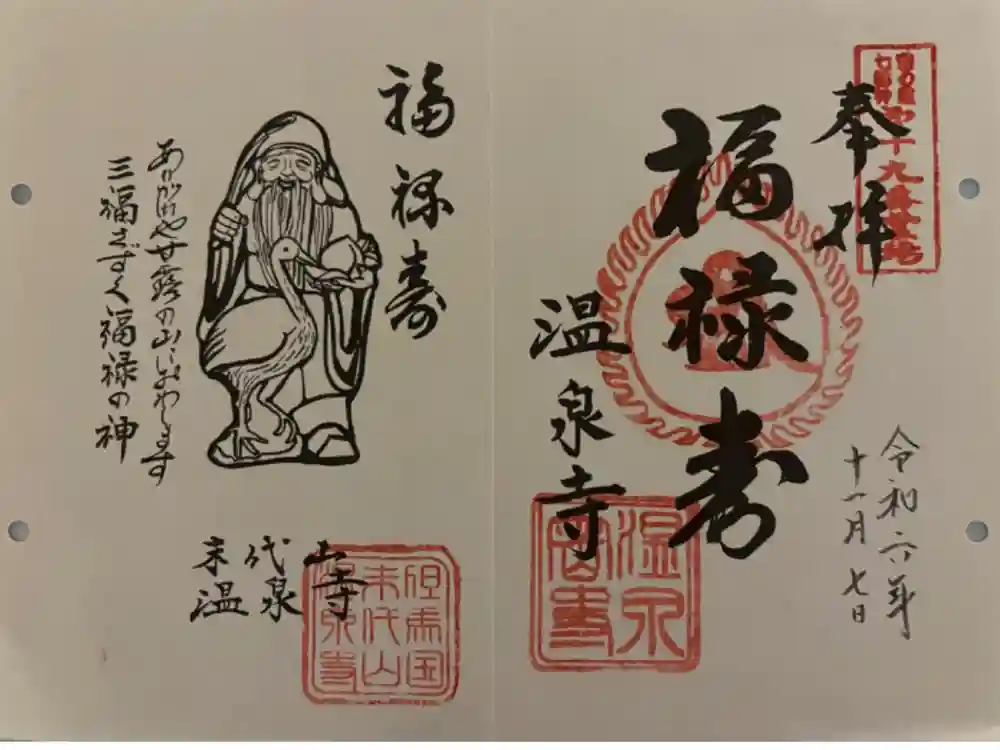 奉拝
福禄寿
温泉寺
令和六年
十一月七日
温泉
福禄寿
ありがたや甘露の山におわします
三福をさずく福禄の神
末代山
温泉寺
但馬国
末代山
温泉寺